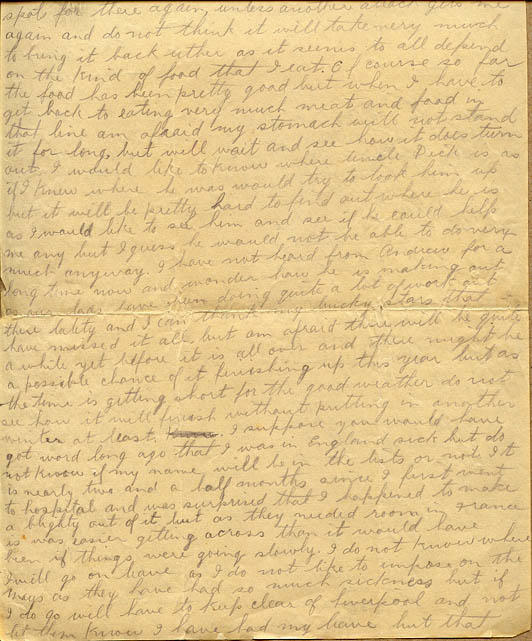 spots for there again, unless another attack gets me
again and do not think it will take very much
to bring it back either as it seems to all depend
on the kind of food that I eat. Of course so far
the food has been pretty good but when I have to
get back to eating very much meat and food in
that line am afraid my stomach will not stand
it for long but will wait and see how it does turn
out. I would like to know where Uncle Dick is as
if I knew where he was would try to look him up
but it will be pretty hard to find out where he is
as I would like to see him and see if he could help
me any but I guess he would not be able to do very
much anyway. I have not heard from Andrew for a
long time now and wonder how he is making out
as our lads have been doing quite a lot of work out
there lately and I can thank my lucky stars that I
have missed it all but am afraid there will be quite
a while yet before it is all over and there might be
a possible chance of it finishing up this year but as
the time is getting short for the good weather do not
see how it will finish without putting in another
winter at least. I suppose you would have
got word long ago that I was in England sick but do
not know if my name will be in the lists or not. It
is nearly two and a half months since I first went
to hospital and was surprised that I happened to make
a blighty out of it but as they needed room in France
is was easier getting across than it would have
been if things were going slowly. I do not know where
I will go on leave as I do not like to impose on the
Mays as they have had so much sickness but if
I do go will have to keep clear of Liverpool and not
let them know I have had my leave but that